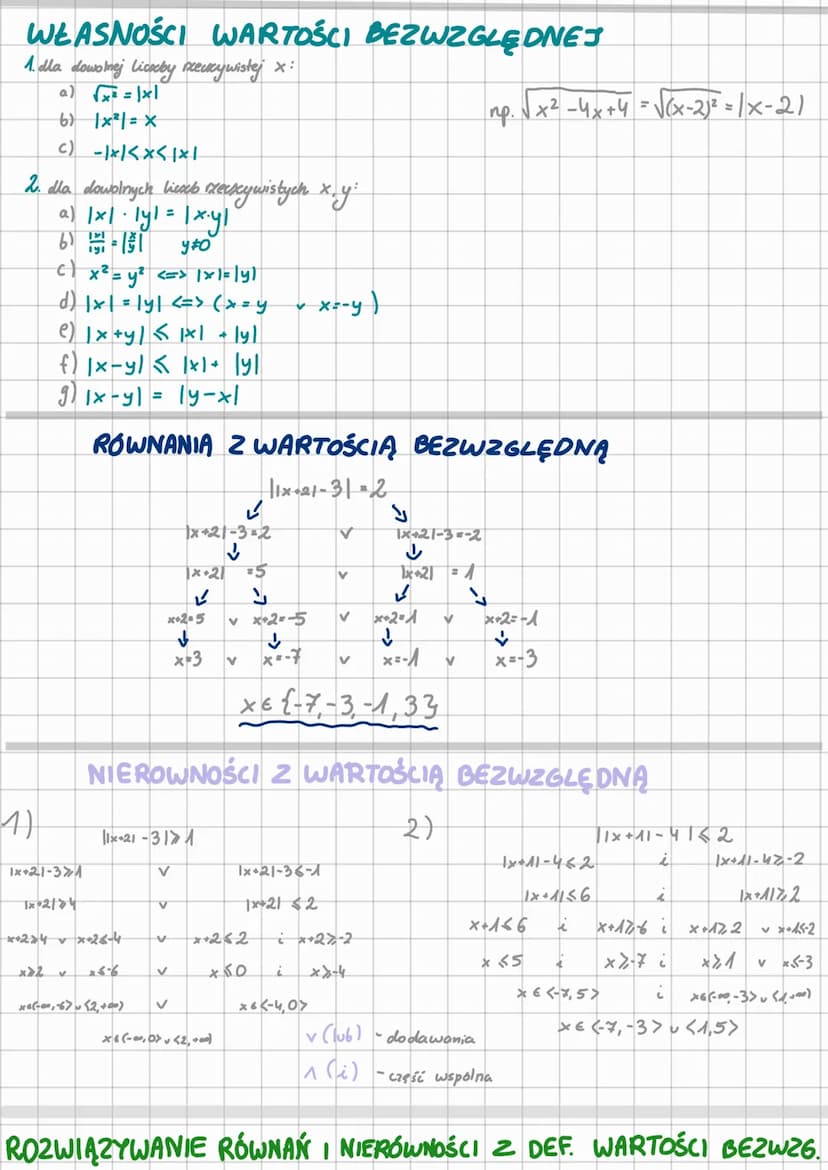 WŁASNOŚCI WARTOŚCI BEZWZGLĘDNEJ
1. dla dowolnej liczby rzeczywistej x:
a) √x² = |x|
b) |x²| = x
c) -|x| < x < |x|
np. √x² -4x+4 = √(x-2)² = |x-2|
2. dla dowolnych liczb rzeczywistych x, y:
a) |x| · |y| = |x·y|
b) |x|/|y| = |x/y| y≠0
c) x² = y² <=> |x|=|y|
d) |x| = |y| <=> (x = y v x=-y )
e) |x +y| ≤ |x| + |y|
f) |x-y| ≤ |x| + |y|
g) |x -y| = |y-x|
RÓWNANIA Z WARTOŚCIĄ BEZWZGLĘDNĄ
||x+2|-3| = 2
|x+2|-3=2 v |x+2|-3=-2
|x+2| =5 v |x+2| = 1
x+2=5 v x+2=-5 v x+2=1 v x+2=-1
x=3 v x=-7 v x=-1 v x=-3
x ∈ {-7,-3,-1,3}
NIEROWNOŚCI Z WARTOŚCIĄ BEZWZGLĘDNĄ
1)
||x+2| -3|≥1
|x+2|-3≥1 v |x+2|-3≤-1
|x+2|≥4 v |x+2| ≤2
x+2≥4 v x+2≤-4 v x+2≤2 i x+2≥-2
x≥2 v x≤-6 v x≤0 i x≥-4
x∈(-∞,-6>∪<2,+∞) v x∈<-4,0>
x∈(-∞,0>∪<2,+∞)
2)
||x+1|-4|≤2
|x+1|-4≤2 i |x+1|-4≥-2
|x+1|≤6 i |x+1|≥2
x+1≤6 i x+1≥-6 i x+1≥2 v x+1≤-2
x ≤5 i x≥-7 i x≥1 v x≤-3
x ∈ <-7,5> i x∈(-∞,-3>∪<1,+∞)
x∈ <-7,-3> ∪ <1,5>
v (lub) - dodawania
∧ (i) - część wspólna
ROZWIĄZYWANIE RÓWNAŃ I NIERÓWNOŚCI Z DEF. WARTOŚCI BEZWZG.